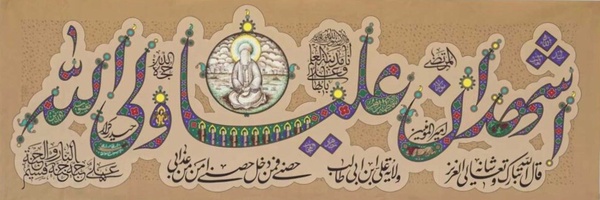 اشهد ان علیا ولی الله
المرتضی
امیرالمؤمنین
انا مدینة العلم
و علی
بابها
حجة الله
حیدر کرار
قال الله تبارک و تعالی شانه العزیز
ولایة علی بن ابی طالب
حصنی فمن دخل حصنی امن من عذابی
علی حبه جنة قسیم النار و الجنة